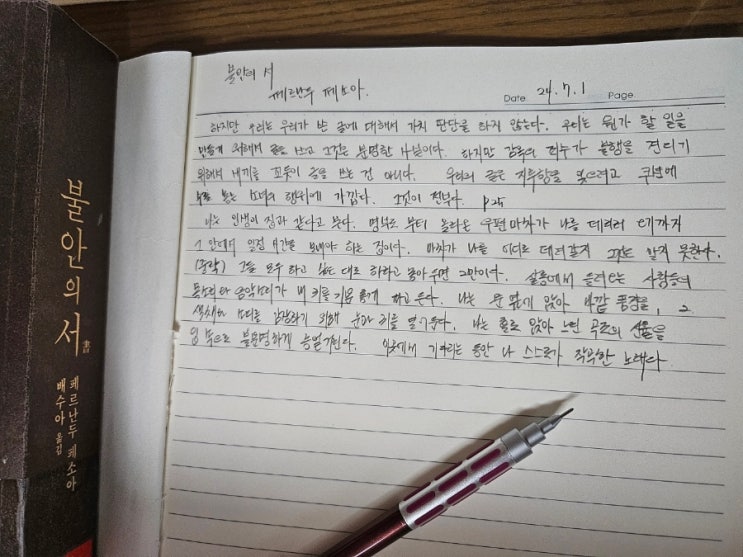 불안의 서
페르난두 페소아.
Date 24.7.1 Page
하지만 우리는 우리가 쓴 글에 대해서 가치 판단을 하지 않는다. 우리는 뭔가 할 일을
만들기 위해서 글을 쓰고 그것은 분명한 사실이다. 하지만 감옥의 죄수가 불행을 견디기
위해서 바구니를 짜듯이 글을 쓰는 건 아니다. 우리의 글은 지루함을 잊으려고 쿠션에
수를 놓는 소녀의 행위에 가깝다. 그것이 전부다. p25
나는 인생이 집과 같다고 본다. 명부로 부터 올라온 우편마차가 나를 데리러 오기까지
그 안에서 일정 시간을 보내야 하는 집이다. 마차가 나를 어디로 데려갈지 그것도 알지 못한다.
(중략) 그들 모두 하고 싶은 대로 하라고 놓아두면 그만이다. 살롱에서 들려오는 사람들의
목소리와 음악소리가 내 귀를 기분 좋게 하고 온다. 나는 문 옆에 앉아 바깥 풍경을, 그
색채와 소리를 감상하기 위해 눈과 귀를 열어둔다. 나는 홀로 앉아 느린 곡조의 선율을
입 속으로 불분명하게 흥얼거린다. 이곳에서 기다리는 동안 나 스스로가 작곡한 노래다.
불안의 서 書
페르난두 페소아
배수아 옮김